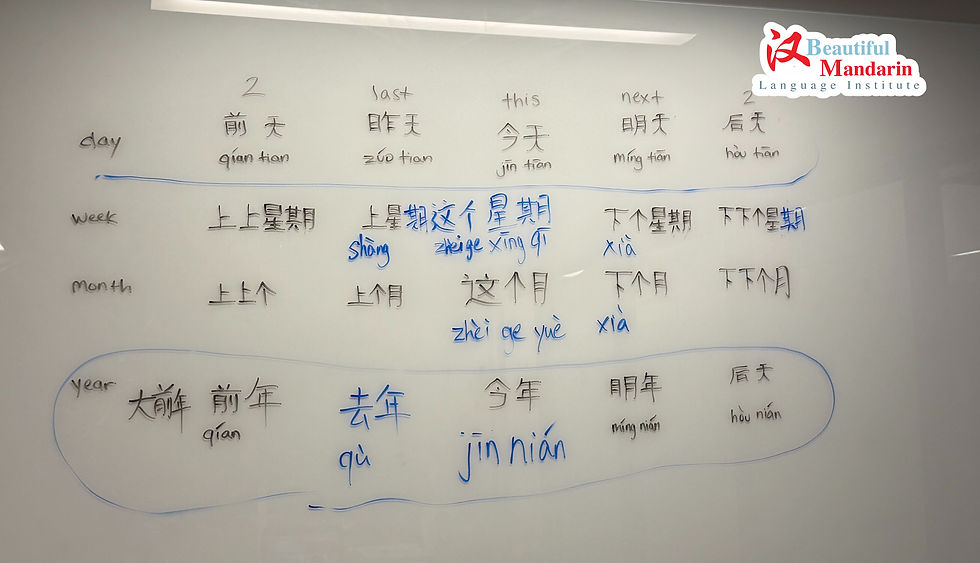 汉 Beautiful
Mandarin
Language Institute
2 last this next 2
day 前天 昨天 今天 明天 后天
qían tian zúo tian jīn tiān míng tiān hòu tiān
week 上上星期 上星期 这个星期 下个星期 下下个星期
shàng zhèige xīng qī xià
month 上上个 上个月 这个月 下个月 下下个月
zhèi ge yuè xià
year 大前年 前年 去年 今年 明年 后天
qían qù jīn nián míng nián hòu nián